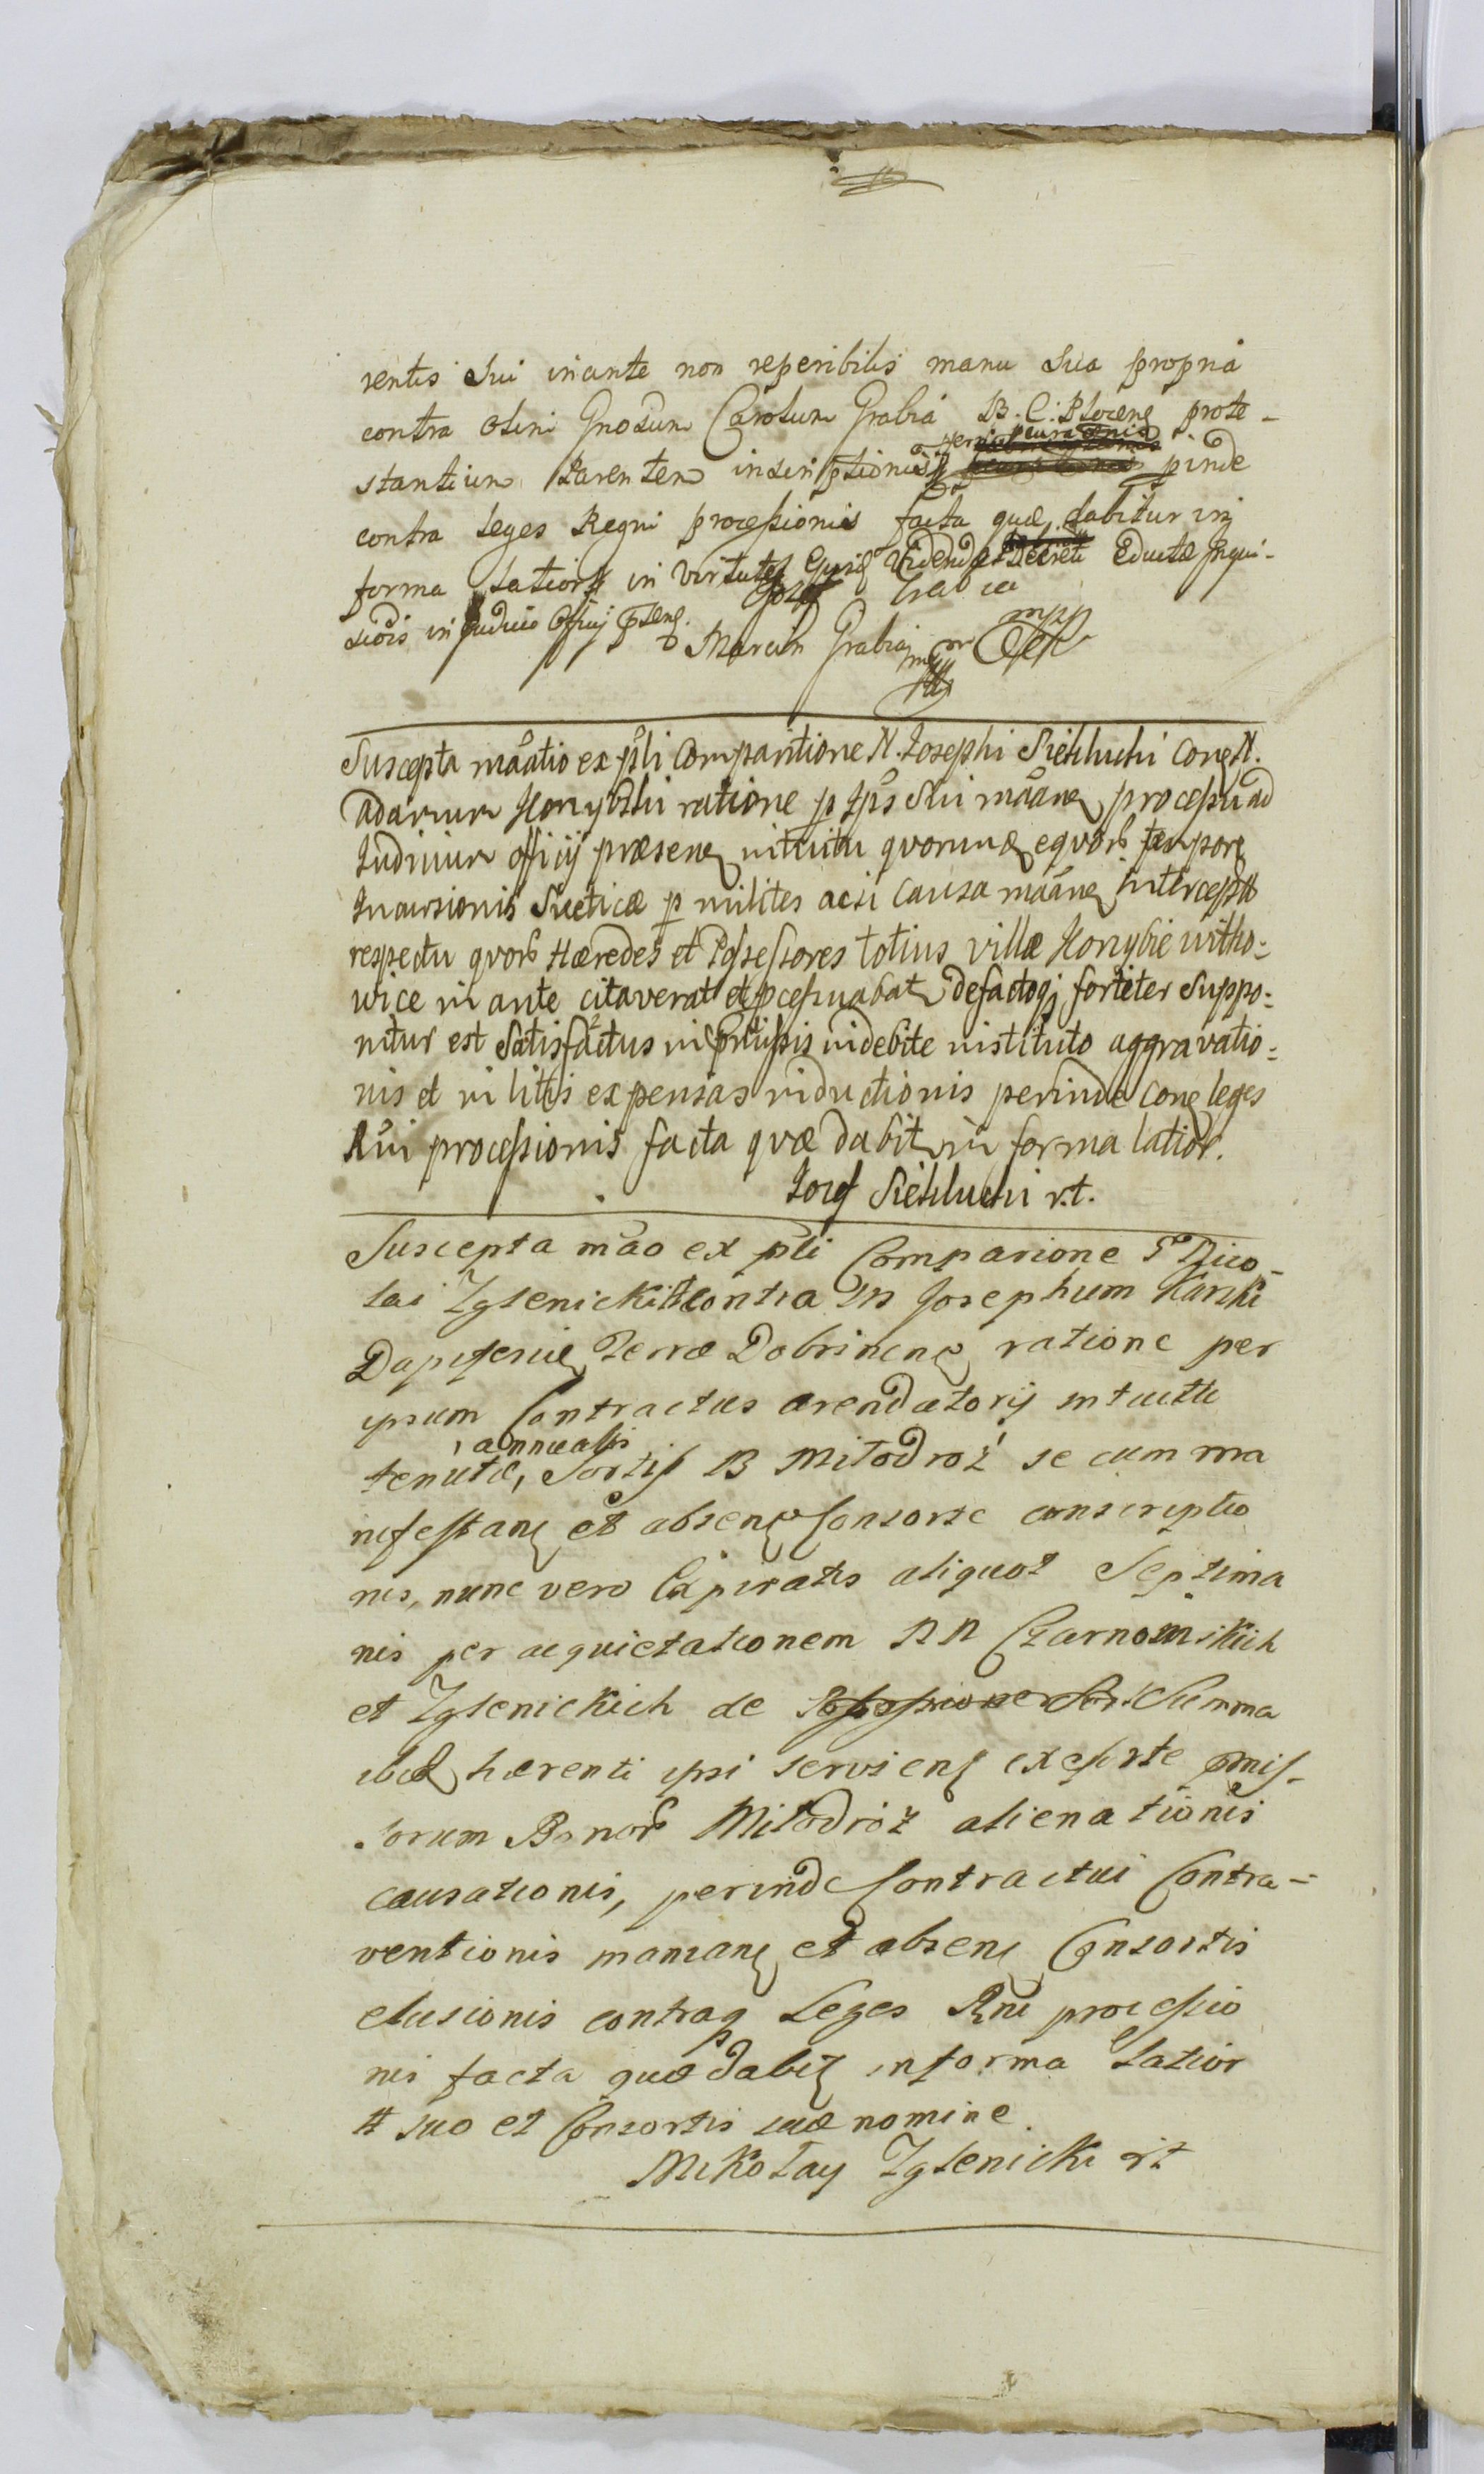 rentis sui inante non reperibilis manu sua propria
contra olim Gnosum Carolum Grabia B. C. Plocens prote-
stantium Parentem inscriptionis pinde
contra Leges Regni processionis facta quæ dabitur in
forma Latiori in Decreti Eductæ Inqui-
in Judicio Officij Grabia
Marcin Grabia mpp
Suscepta mãatio ex psli Comparitione N. Josephi Sieklucki Cone N.
Adamum Konybski ratione p Ips sui mãane processu ad
Judicium officij præsene intuitu quorund equorb tempore
Incursionis Sueticæ p milites acsi causa mãane intercept
respectu quorb Hæredes et Possessores totius villæ Konybie witko=
wice in ante citaverat et pcessuabat defactoq forsiter suppo=
nitur est satisfactus in pmissis indebite instituto aggravatio=
nis et in litis expensas inductionis perinde cone leges
Rni processionis facta quæ dabit in forma latior.
Jozef Sieklucki r.t.
Suscepta mão ex psli Comparione G Nico-
lai Zglenicki contra M Josephum Karski
Dapiferum Terræ Dobrinene ratione per
ipsum Contractus arendatorij intuitu
annualis
tenutæ, Sortis B Mitodroż se cum ma
nifestane et absene Consorte conscriptio
nis, nunc vero Expiratis aliquot Septima
nis per acquietationem NN Czarnomskich
et Zglenickich de Summa
ibid hærenti ipsi serviene ex sorte pmis-
sorum Bonorb Mitodroż alienationis
causationis, perinde Contractui Contra-
ventionis manane et absene Consortis
elusionis contraq Leges Rni processio
nis facta quæ dabit in forma Latior
# suo et Consortis suæ nomine
Mikołay Zglenicki rt